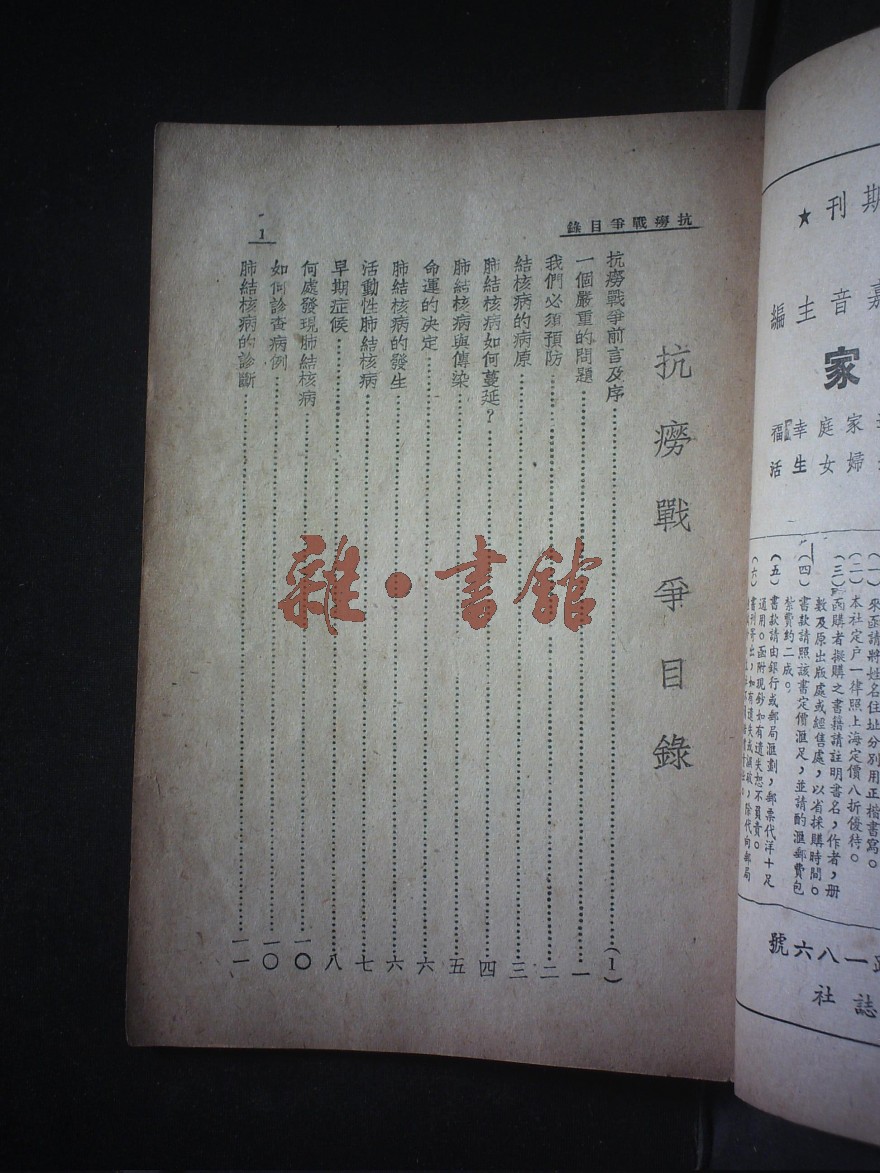 抗癆戰爭目錄
1
抗癆戰爭目錄
抗癆戰爭前言及序……(1)
一個嚴重的問題……一
我們必須預防……二
結核病的病原……三
肺結核病如何蔓延？……四
肺結核病與傳染……五
命運的決定……六
肺結核病的發生……六
活動性肺結核病……七
早期症候……八
何處發現肺結核病……一〇
如何診查病例……一〇
肺結核病的診斷……一一
雜·書館
期刊★
嘉音主編
家
家庭幸福
婦女生活
(一)來函請將姓名住址分別用正楷書寫。
(二)本社定户一律照上海定價八折優待。
(三)函購者擬購之書籍請註明書名，作者，册
數及原出版處或經售處，以省採購時間。
(四)書款請照該書定價滙足，並請酌滙郵費包
紮費約二成。
(五)書款請由銀行或郵局滙劃，郵票代洋十足
通用。函附現鈔如有遺失恕不負責。
(六)書刊寄出，如有遺失或損破，除代向郵局
路一八六號
誌社